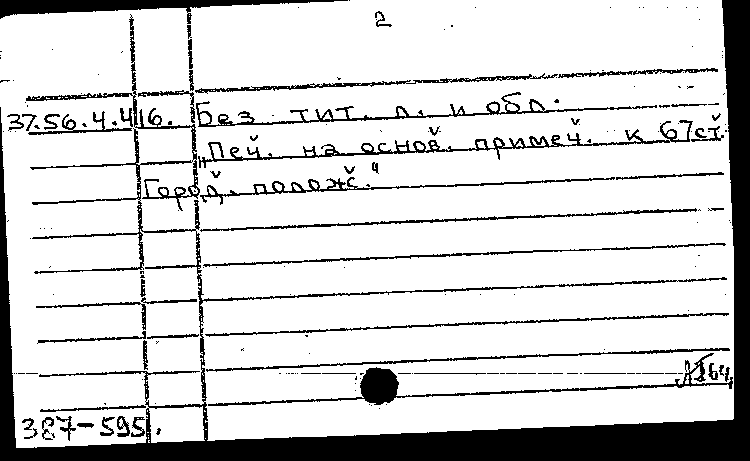 2
37.56.4.416. Без тит. л. и обл.
„Печ. на основ. примеч. к 67 ст.
Город. полож."
387-595.